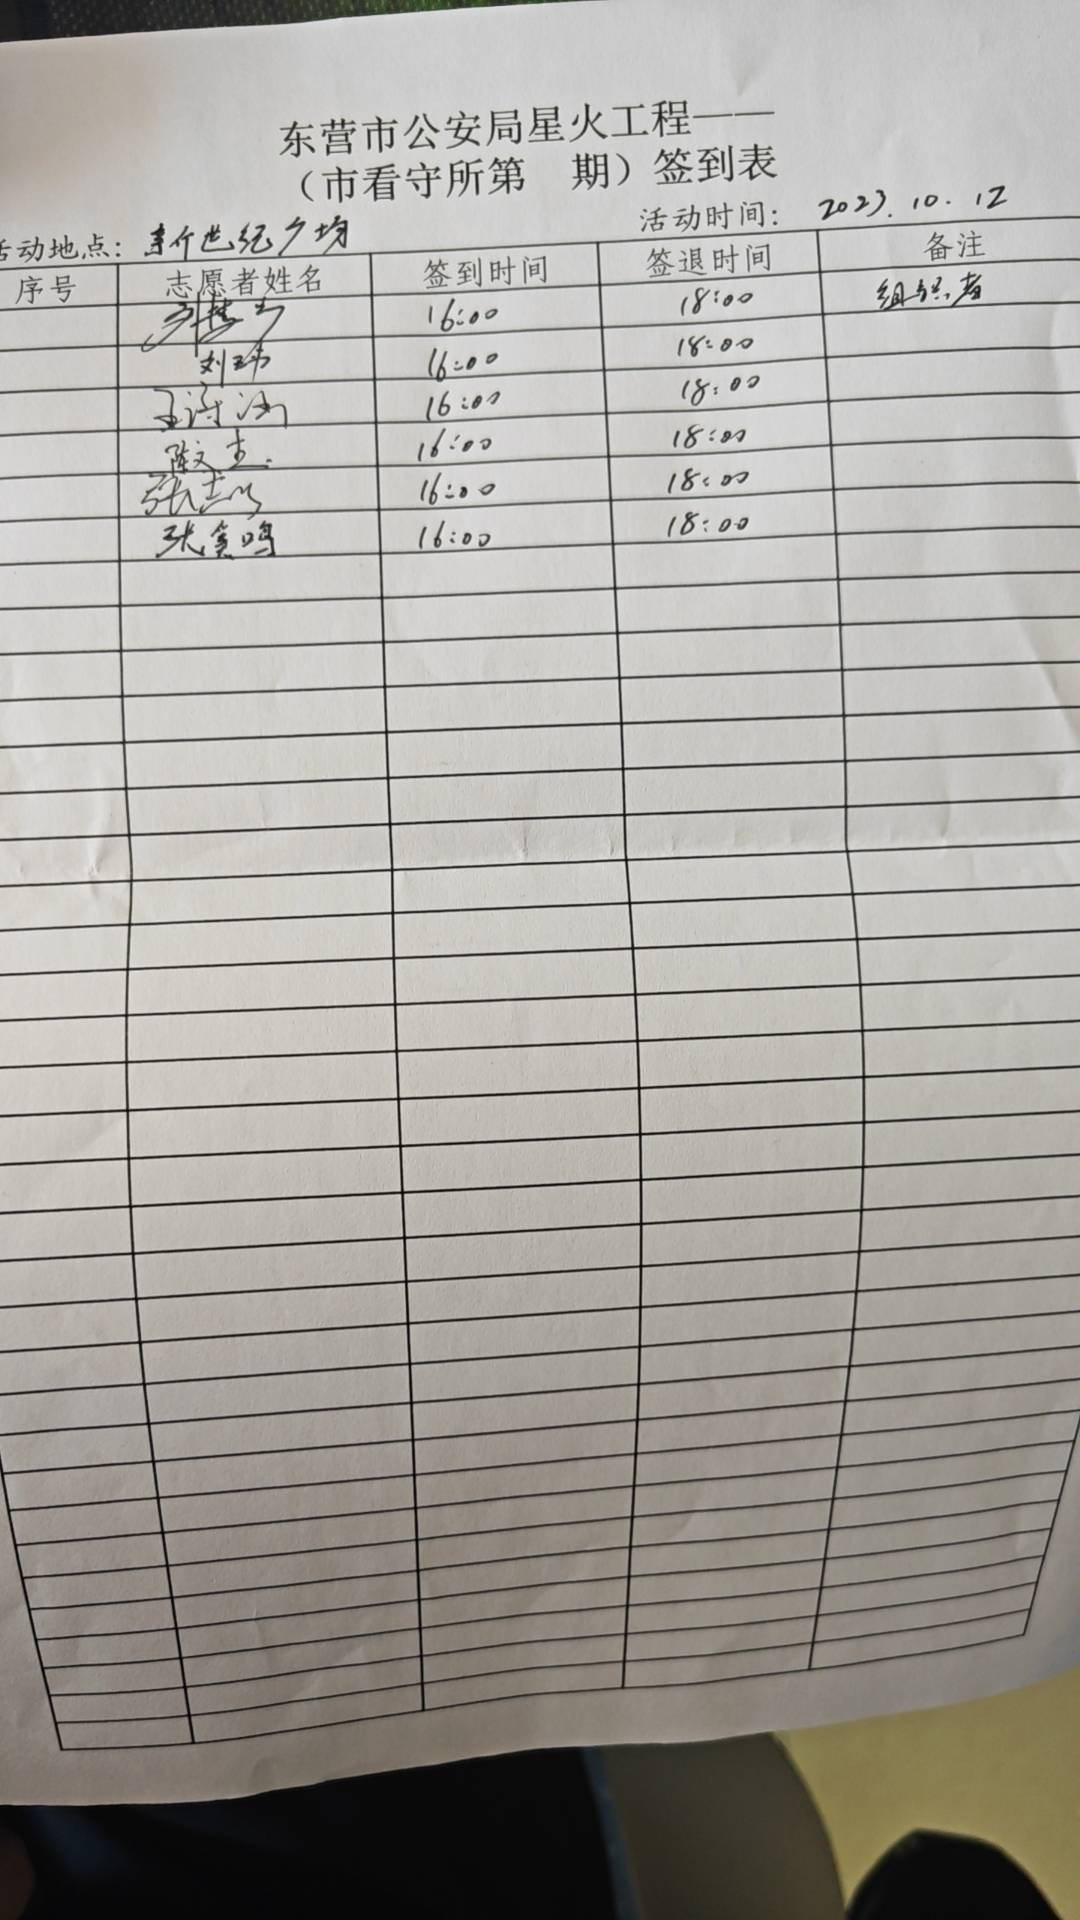 东营市公安局星火工程——
（市看守所第 期）签到表
活动地点：新世纪广场 活动时间：2023.10.12
序号 志愿者姓名 签到时间 签退时间 备注
16:00 18:00 组织者
刘玮 16:00 18:00
王 16:00 18:00
陈文 16:00 18:00
张志 16:00 18:00
张 鸣 16:00 18:00